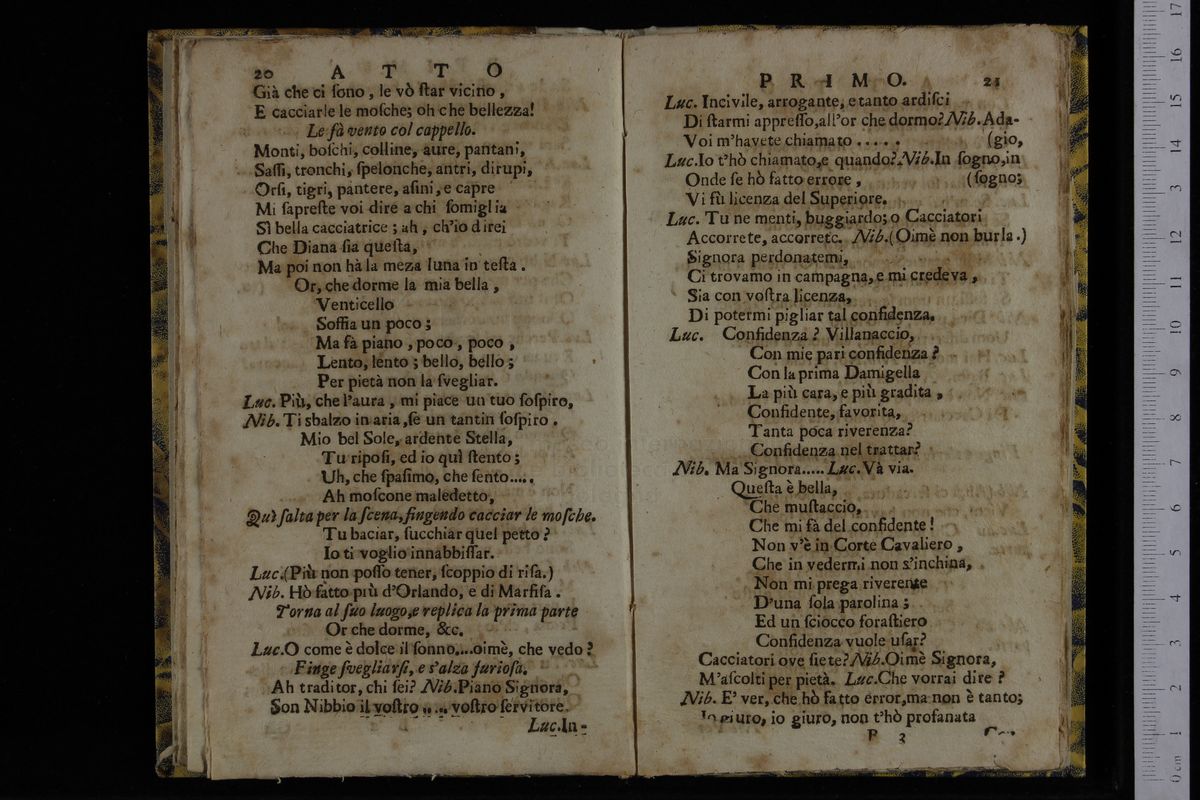 20 A T T O
Già che ci ſono , le vò ſtar vicino ,
E cacciarle le moſche; oh che bellezza!
Le fà vento col cappello.
Monti, boſchi, colline, aure, pantani,
Saſſi, tronchi, ſpelonche, antri, dirupi,
Orſi, tigri, pantere, aſini, e capre
Mi ſapreſte voi dire a chi ſomiglia
Sì bella cacciatrice ; ah , ch'io direi
Che Diana ſia queſta,
Ma poi non hà la meza luna in teſta .
Or, che dorme la mia bella ,
Venticello
Soffia un poco ;
Ma fà piano , poco , poco ,
Lento, lento ; bello, bello ;
Per pietà non la ſvegliar.
Luc. Più, che l'aura , mi piace un tuo ſoſpiro,
Nib. Ti sbalzo in aria ,ſe un tantin ſoſpiro .
Mio bel Sole, ardente Stella,
Tu ripoſi, ed io quì ſtento ;
Uh, che ſpaſimo, che ſento.....
Ah moſcone maledetto,
Quì ſalta per la ſcena, fingendo cacciar le moſche.
Tu baciar, ſucchiar quel petto ?
Io ti voglio innabbiſſar.
Luc.(Più non poſſo tener, ſcoppio di riſa.)
Nib. Hò fatto più d'Orlando, e di Marfiſa .
Torna al ſuo luogo,e replica la prima parte
Or che dorme, &c.
Luc.O come è dolce il ſonno....oimè, che vedo ?
Finge ſvegliarſi, e s'alza furioſa.
Ah traditor, chi ſei? Nib.Piano Signora,
Son Nibbio il voſtro .. .. voſtro ſervitore.
Luc.In-
P R I M O. 21
Luc. Incivile, arrogante, e tanto ardiſci
Di ſtarmi appreſſo,all'or che dormo? Nib.Ada-
Voi m'havete chiamato ..... (gio,
Luc.Io t'hò chiamato,e quando? Nib.In ſogno,in
Onde ſe hò fatto errore , (ſogno;
Vi fù licenza del Superiore.
Luc. Tu ne menti, buggiardo; o Cacciatori
Accorrete, accorrete. Nib.(Oimè non burla.)
Signora perdonatemi,
Ci trovamo in campagna, e mi credeva ,
Sia con voſtra licenza,
Di potermi pigliar tal confidenza.
Luc. Confidenza ? Villanaccio,
Con mie pari confidenza ?
Con la prima Damigella
La più cara, e più gradita ,
Confidente, favorita,
Tanta poca riverenza?
Confidenza nel trattar?
Nib. Ma Signora..... Luc.Và via.
Queſta è bella,
Che muſtaccio,
Che mi fà del confidente !
Non v'è in Corte Cavaliero ,
Che in vedermi non s'inchina,
Non mi prega riverente
D'una ſola parolina ;
Ed un ſciocco foraſtiero
Confidenza vuole uſar?
Cacciatori ove ſiete? Nib.Oimè Signora,
M'aſcolti per pietà. Luc.Che vorrai dire ?
Nib. E' ver, che hò fatto error,ma non è tanto;
Io giuro, io giuro, non t'hò profanata
3